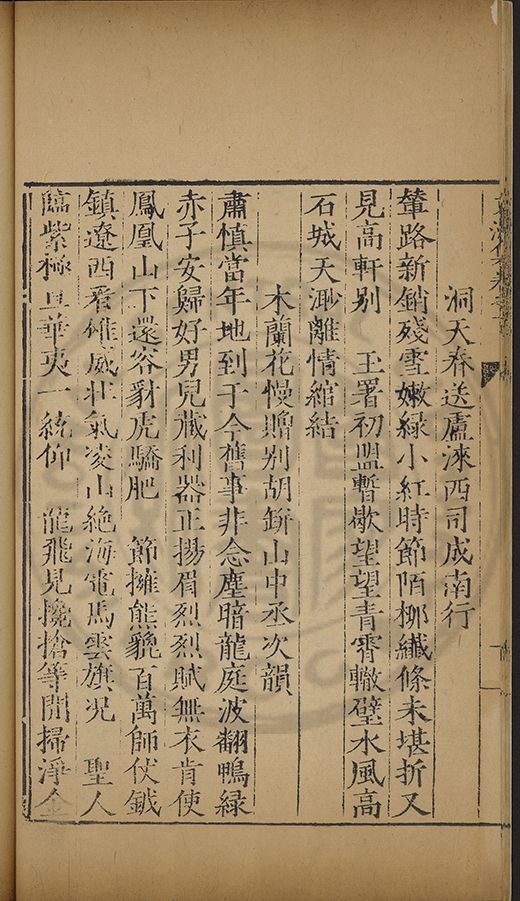 洞天春送盧淶西司成南行
輦路新銷殘雪嫩綠小紅時節陌柳纖條未堪折又
見高軒别 玉署初盟暫歇望望青霄轍璧水風高
石城天渺離情綰結
木蘭花慢贈别胡鉼山中丞次韻
肅慎當年地到于今舊事非念塵暗龍庭波翻鴨綠
赤子安歸好男兒藏利器正揚眉烈烈賦無衣肯使
鳳凰山下還容豺虎驕肥 節擁熊貔百萬師仗鉞
鎮遼西看雄威壯氣凌山絶海電馬雲旗况 聖人
臨紫極且華夷一統仰 龍飛見攙搶等閒掃淨金